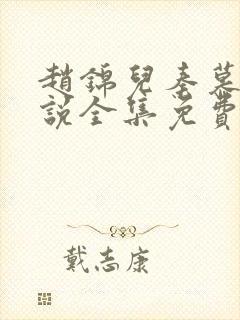 趙錦兒秦慕
說全集免費
戴志康